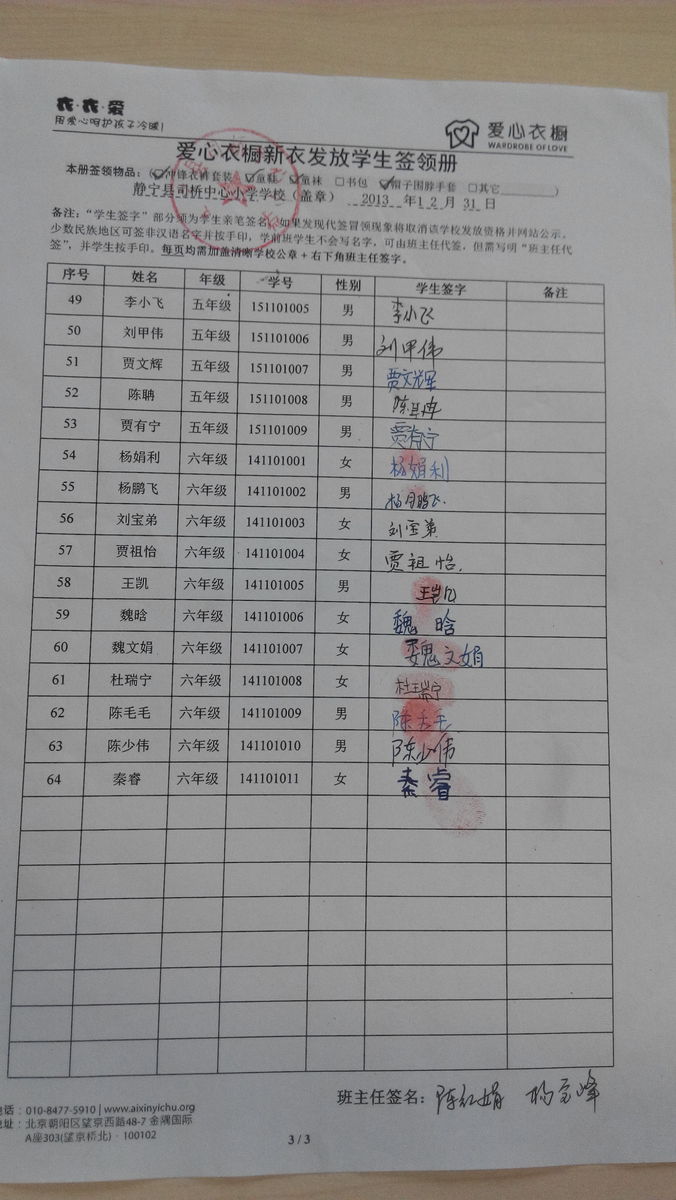 衣·衣·爱
用爱心呵护孩子冷暖!
爱心衣橱
WARDROBE OF LOVE
爱心衣橱新衣发放学生签领册
本册签领物品:(☑冲锋衣裤套装 ☑童鞋 ☑童袜 □书包 ☑帽子围脖手套 □其它________)
静宁县司桥中心小学学校(盖章) 2013 年12月31日
备注:“学生签字”部分须为学生亲笔签名。如果发现代签冒领现象将取消该学校发放资格并网站公示。
少数民族地区可签非汉语名字并按手印,学前班学生不会写名字,可由班主任代签,但需写明“班主任代
签”,并学生按手印。每页均需加盖清晰学校公章+右下角班主任签字。
序号 姓名 年级 学号 性别 学生签字 备注
49 李小飞 五年级 151101005 男 李小飞
50 刘甲伟 五年级 151101006 男 刘甲伟
51 贾文辉 五年级 151101007 男 贾文辉
52 陈聃 五年级 151101008 男 陈聃
53 贾有宁 五年级 151101009 男 贾有宁
54 杨娟利 六年级 141101001 女 杨娟利
55 杨鹏飞 六年级 141101002 男 杨鹏飞.
56 刘宝弟 六年级 141101003 女 刘宝弟
57 贾祖怡 六年级 141101004 女 贾祖怡.
58 王凯 六年级 141101005 男 王凯
59 魏晗 六年级 141101006 女 魏晗
60 魏文娟 六年级 141101007 女 魏文娟
61 杜瑞宁 六年级 141101008 女 杜瑞宁
62 陈毛毛 六年级 141101009 男 陈毛毛
63 陈少伟 六年级 141101010 男 陈少伟
64 秦睿 六年级 141101011 女 秦睿
班主任签名:陈红娟 杨宝峰
电话:010-8477-5910 | www.aixinyichu.org
地址:北京朝阳区望京西路48-7 金隅国际
A座303(望京桥北)·100102
3 / 3